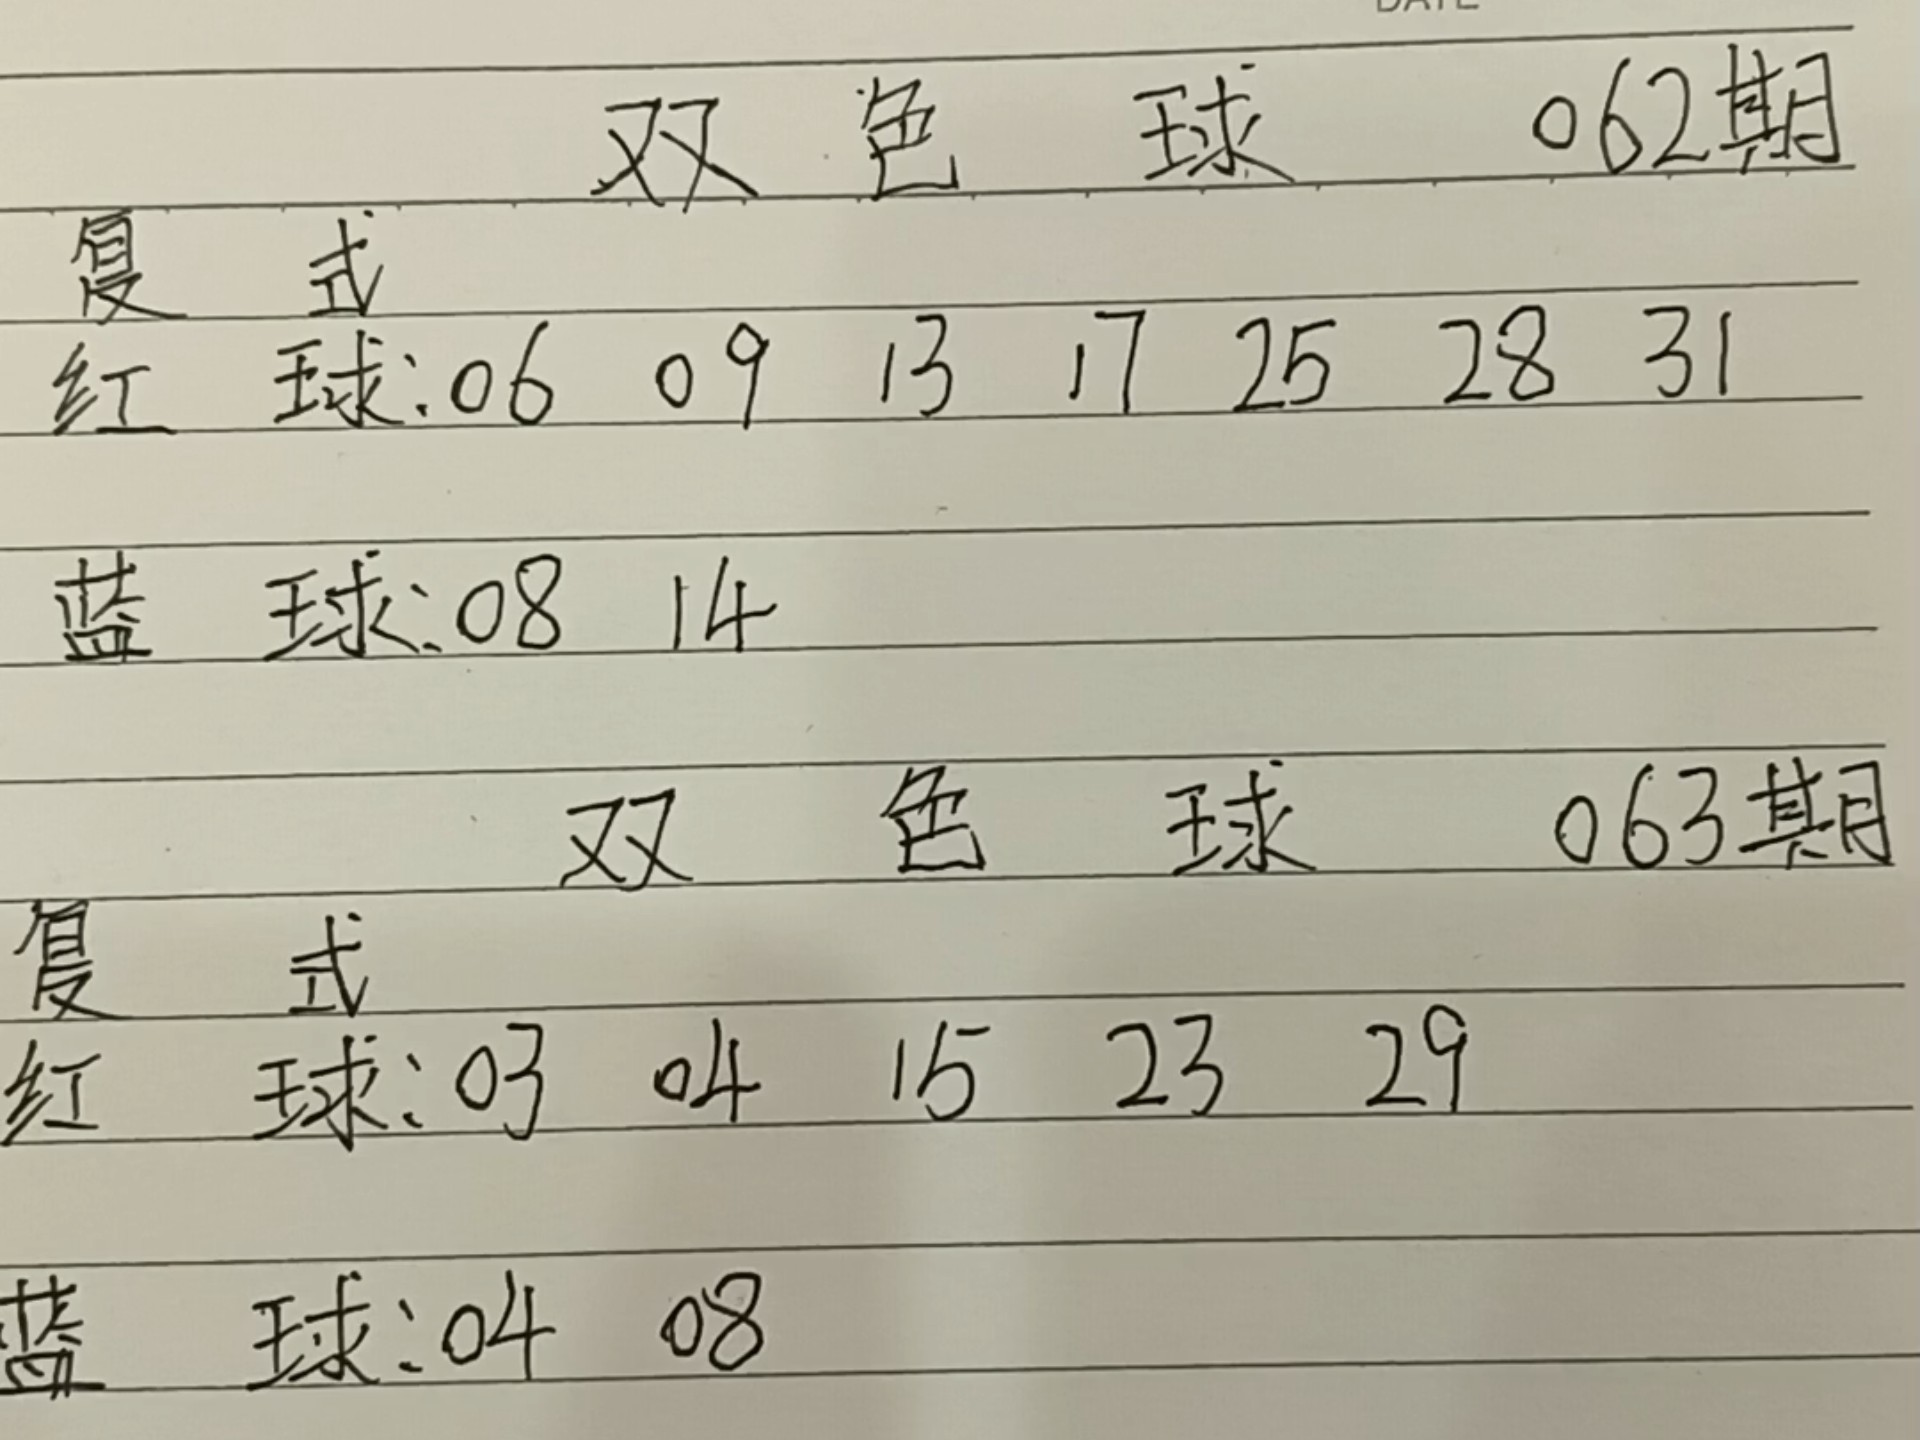 DATE
双 色 球 062期
复 式
红 球:06 09 13 17 25 28 31
蓝 球:08 14
双 色 球 063期
复 式
红 球:03 04 15 23 29
蓝 球:04 08